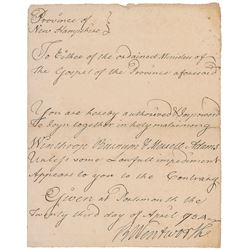 Province of
New Hampshire
To Either of the ordained Ministers of
The Gospel of the Province aforesaid
You are hereby authorized & Impowered
To Joyn together in holy matrimony
Winthrop
Unless some Lawfull impediment
Appears to you to the Contrary
Given at Portsmouth the
Twenty third day of April
B Wentworth